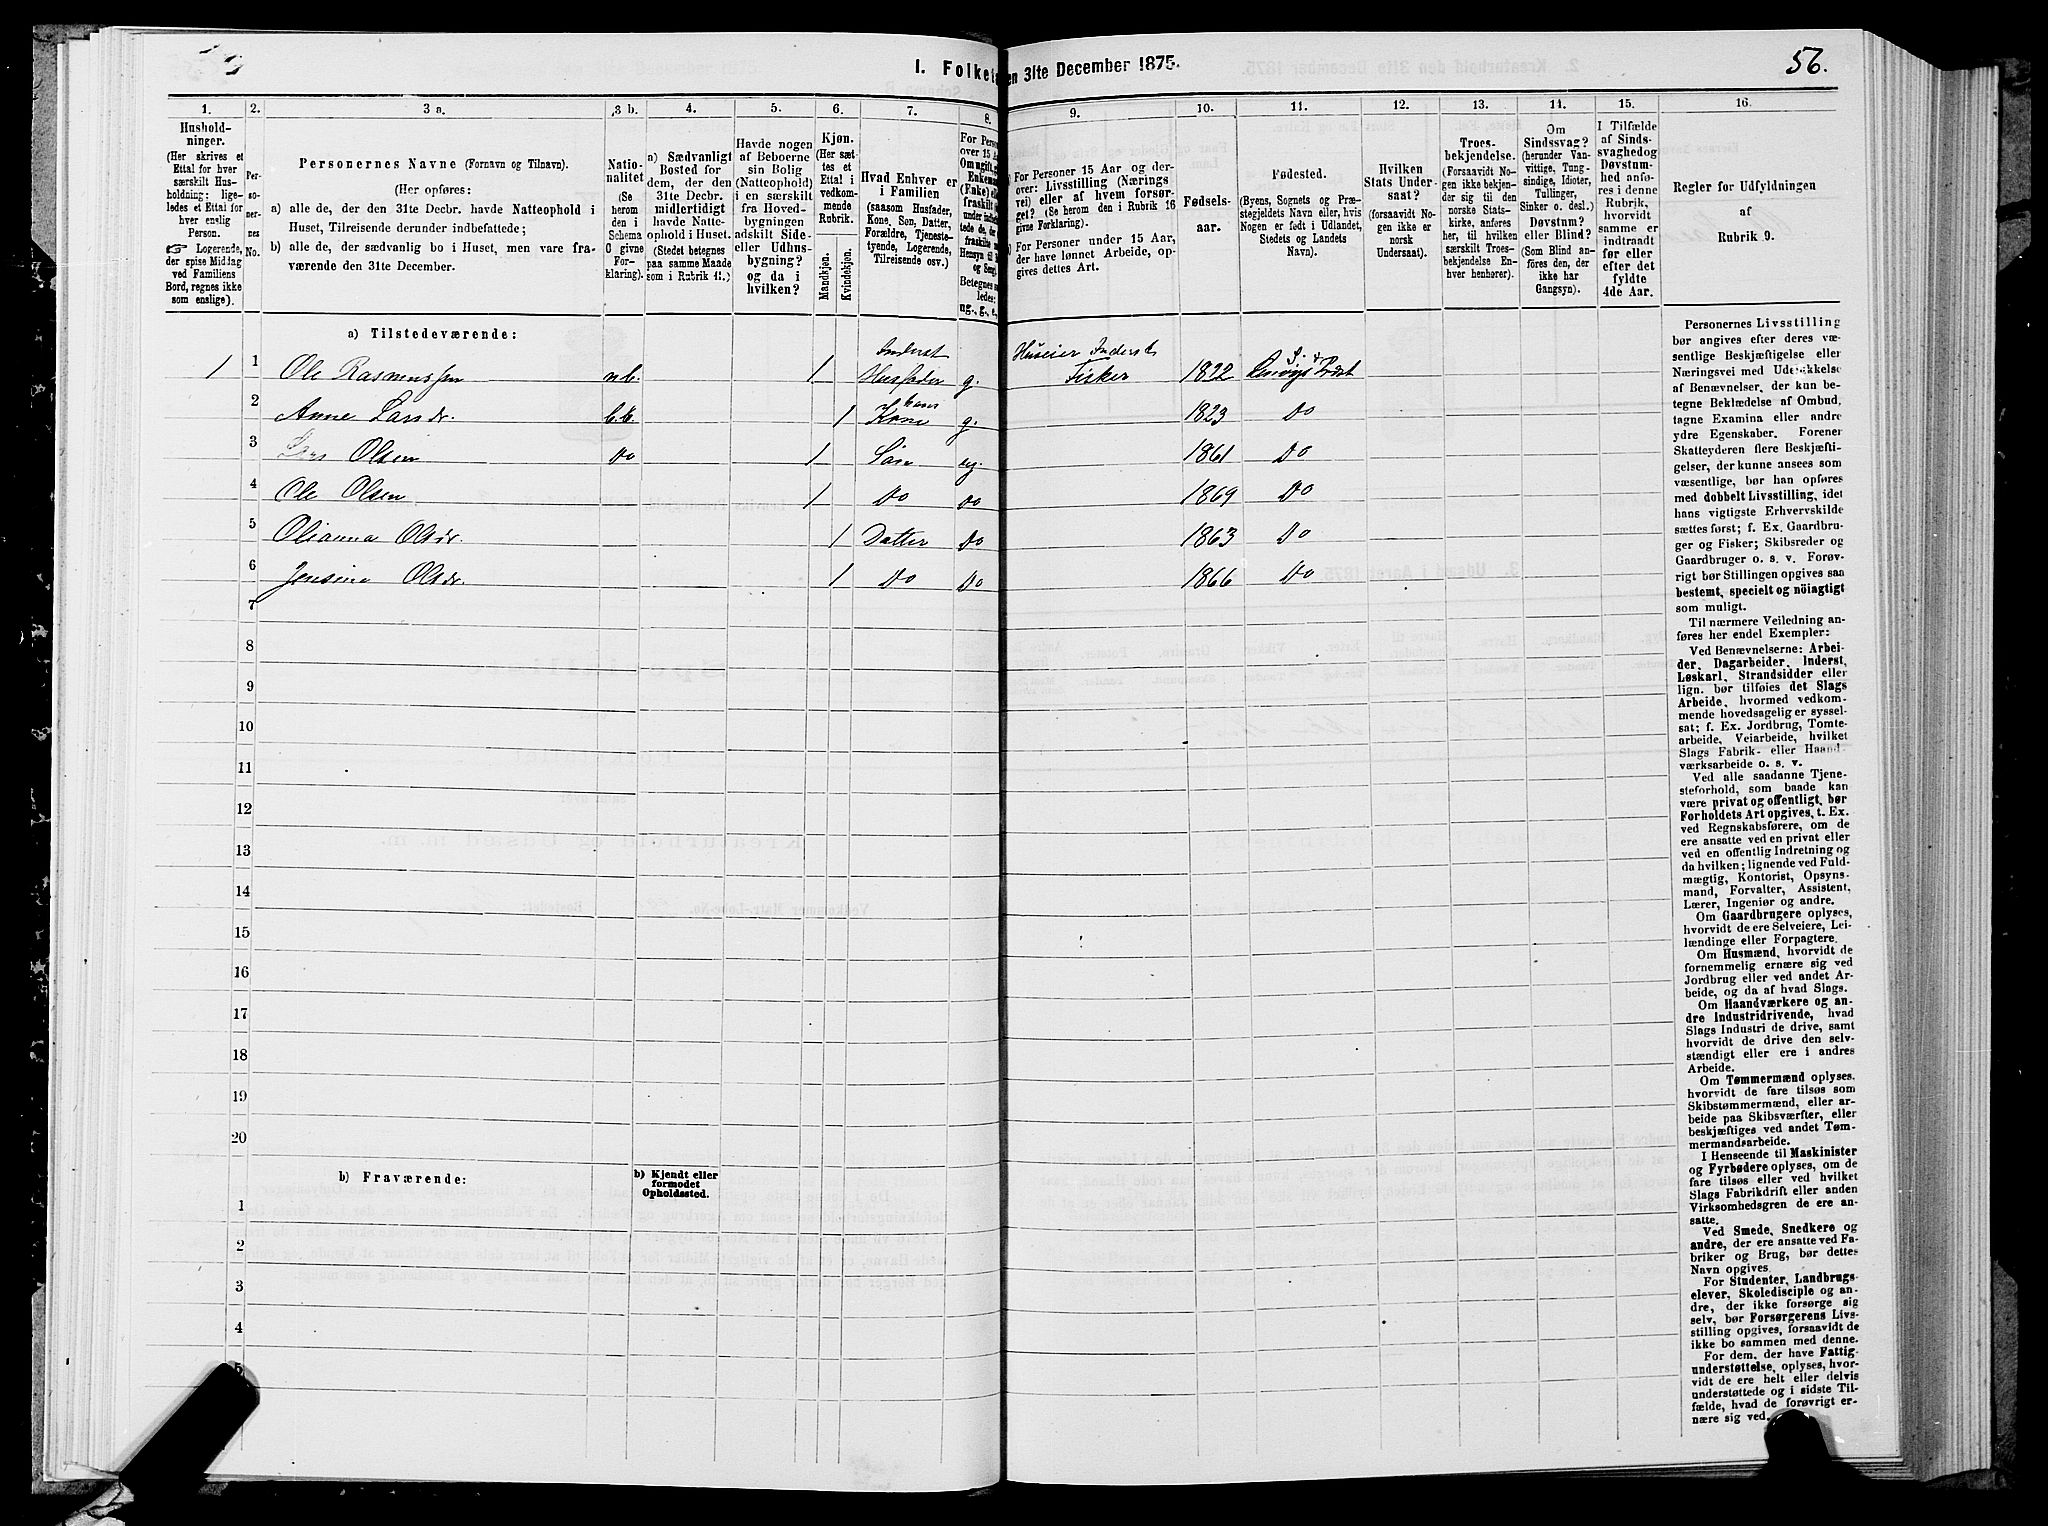 I. Folket
en 31te December 1875.
56.
1.
2.
3 a.
3 b.
4.
5.
6.
7.
8.
9.
10.
11.
12.
13.
14.
15.
16.
Hushold-
ninger.
(Her skrives et
Ettal for hver
særskilt Hus-
holdning; lige-
ledes et Ettal for
hver enslig
Person.
☞ Logerende,
der spise Middag
ved Familiens
Bord, regnes ikke
som enslige).
Per-
so-
ner-
nes
No.
Personernes Navne (Fornavn og Tilnavn).
(Her opføres:
a) alle de, der den 31te Decbr. havde Natteophold i
Huset, Tilreisende derunder indbefattede;
b) alle de, der sædvanlig bo i Huset, men vare fra-
værende den 31te December.
Natio-
nalitet
(Se
herom
den i
Schema
C givne
For-
klaring).
a) Sædvanligt
Bosted for
dem, der den
31te Decbr.
midlertidigt
havde Natte-
ophold i Huset.
(Stedet betegnes
paa samme Maade
som i Rubrik 11.)
Havde nogen
af Beboerne
sin Bolig
(Natteophold)
i en særskilt
fra Hoved-
bygningen
adskilt Side-
eller Udhus-
bygning?
og da i
hvilken?
Kjøn.
(Her sæt-
tes et
Ettal i
vedkom-
mende
Rubrik.
Mandkjøn.
Kvindekjøn.
Hvad Enhver er
i Familien
(saasom Husfader,
Kone, Søn, Datter,
Forældre, Tjeneste-
tyende, Logerende,
Tilreisende osv.)
For Perso
over 15 Aa
Om ugift, g
Enkema
(Enke) e
fraskilt
Betegnes s
ledes:
ug., g., e,
For Personer 15 Aar og der-
over: Livsstilling (Nærings
vei) eller af hvem forsør-
get? (Se herom den i Rubrik 16
givne Forklaring).
For Personer under 15 Aar,
der have lønnet Arbeide, op-
gives dettes Art.
Fødsels-
aar.
Fødested.
(Byens, Sognets og Præ-
stegjeldets Navn eller, hvis
Nogen er født i Udlandet,
Stedets og Landets
Navn).
Hvilken
Stats Under-
saat?
(forsaavidt No-
gen ikke er
norsk
Undersaat).
Troes-
bekjendelse.
(Forsaavidt No-
gen ikke bekjen-
der sig til den
norske Stats-
kirke, anføres
her, til hvilken
særskilt Troes-
bekjendelse En-
hver henhører).
Om
Sindssvag?
(herunder Van-
vittige, Tung-
sindige, Idioter,
Tullinger,
Sinker o. desl.)
Døvstum?
eller Blind?
(Som Blind an-
føres den, der
ikke har
Gangsyn).
I Tilfælde
af Sinds-
svaghed og
Døvstum-
hed anfø-
res i denne
Rubrik,
hvorvidt
samme er
indtraadt
før eller
efter det
fyldte
4de Aar.
Regler for Udfyldningen
af
Rubrik 9.
a) Tilstedeværende:
1 1 Ole Rasmussen n.b. 1 Inderst Husfader g. Huseier Inderst Fisker 1822
2 Anne Larsdr. b.b. 1 hans Kone g. 1823 Do
3 Lars Olsen Do 1 Søn ug. 1861 Do
4 Ole Olsen 1 Do Do 1869 Do
5 Olianna Olsdr. 1 Datter Do 1863 Do
6 Jensina Olsdr. 1 Do Do 1866 Do
7
8
9
10
11
12
13
14
15
16
17
18
19
20
b) Fraværende:
b) Kjendt eller
formodet
Opholdssted.
1
2
3
4
5
Personernes Livsstilling
bør angives efter deres væ-
sentlige Beskjæftigelse eller
Næringsvei med Udelukkelse
af Benævnelser, der kun be-
tegne Beklædelse af Ombud,
tagne Examina eller andre
ydre Egenskaber. Forener
Skatteyderen flere Beskjæfti-
gelser, der kunne ansees som
væsentlige, bør han opføres
med dobbelt Livsstilling, idet
hans vigtigste Erhvervskilde
sættes først; f. Ex. Gaardbru-
ger og Fisker; Skibsreder og
Gaardbruger o. s. v. Forøv-
rigt bør Stillingen opgives saa
bestemt, specielt og nöiagtigt
som muligt.
Til nærmere Veiledning an-
føres her endel Exempler:
Ved Benævnelserne: Arbei-
der, Dagarbeider, Inderst,
Løskarl, Strandsidder eller
lign. bør tilføies det Slags
Arbeide, hvormed vedkom-
mende hovedsagelig er syssel-
sat; f. Ex. Jordbrug, Tomte-
arbeide, Veiarbeide, hvilket
Slags Fabrik- eller Haand
værksarbeide o. s. v.
Ved alle saadanne Tjene-
steforhold, som baade kan
være privat og offentligt, bør
Forholdets Art opgives, t. Ex.
ved Regnskabsførere, om de
ere ansatte ved en privat eller
ved en offentlig Indretning og
da hvilken; lignende ved Fuld-
mægtig, Kontorist, Opsyns-
mand, Forvalter, Assistent,
Lærer, Ingeniør og andre.
Om Gaardbrugere oplyses,
hvorvidt de ere Selveiere, Lei-
lændinge eller Forpagtere.
Om Husmænd, hvorvidt de
fornemmelig ernære sig ved
Jordbrug eller ved andet Ar-
beide, og da af hvad Slags.
Om Haandværkere og an-
dre Industridrivende, hvad
Slags Industri de drive, samt
hvorvidt de drive den selv-
stændigt eller ere i andres
Arbeide.
Om Tømmermænd oplyses,
hvorvidt de fare tilsøs som
Skibstømmermænd, eller ar-
beide paa Skibsværfter, eller
beskjæftiges ved andet Tøm-
mermandsarbeide.
I Henseende til Maskinister
og Fyrbødere oplyses, om de
fare tilsøs eller ved hvilket
Slags Fabrikdrift eller anden
Virksomhedsgren de ere an-
satte.
Ved Smede, Snedkere og
andre, der ere ansatte ved Fa-
briker og Brug, bør dettes
Navn opgives.
For Studenter, Landbrugs-
elever, Skoledisciple og an-
dre, der ikke forsørge sig
selv, bør Forsørgerens Livs-
stilling opgives, forsaavidt de
ikke bo sammen med denne.
For dem, der have Fattig-
understøttelse, oplyses, hvor-
vidt de ere helt eller delvis
understøttede og i sidste Til-
fælde, hvad de forøvrigt er-
nære sig ved.